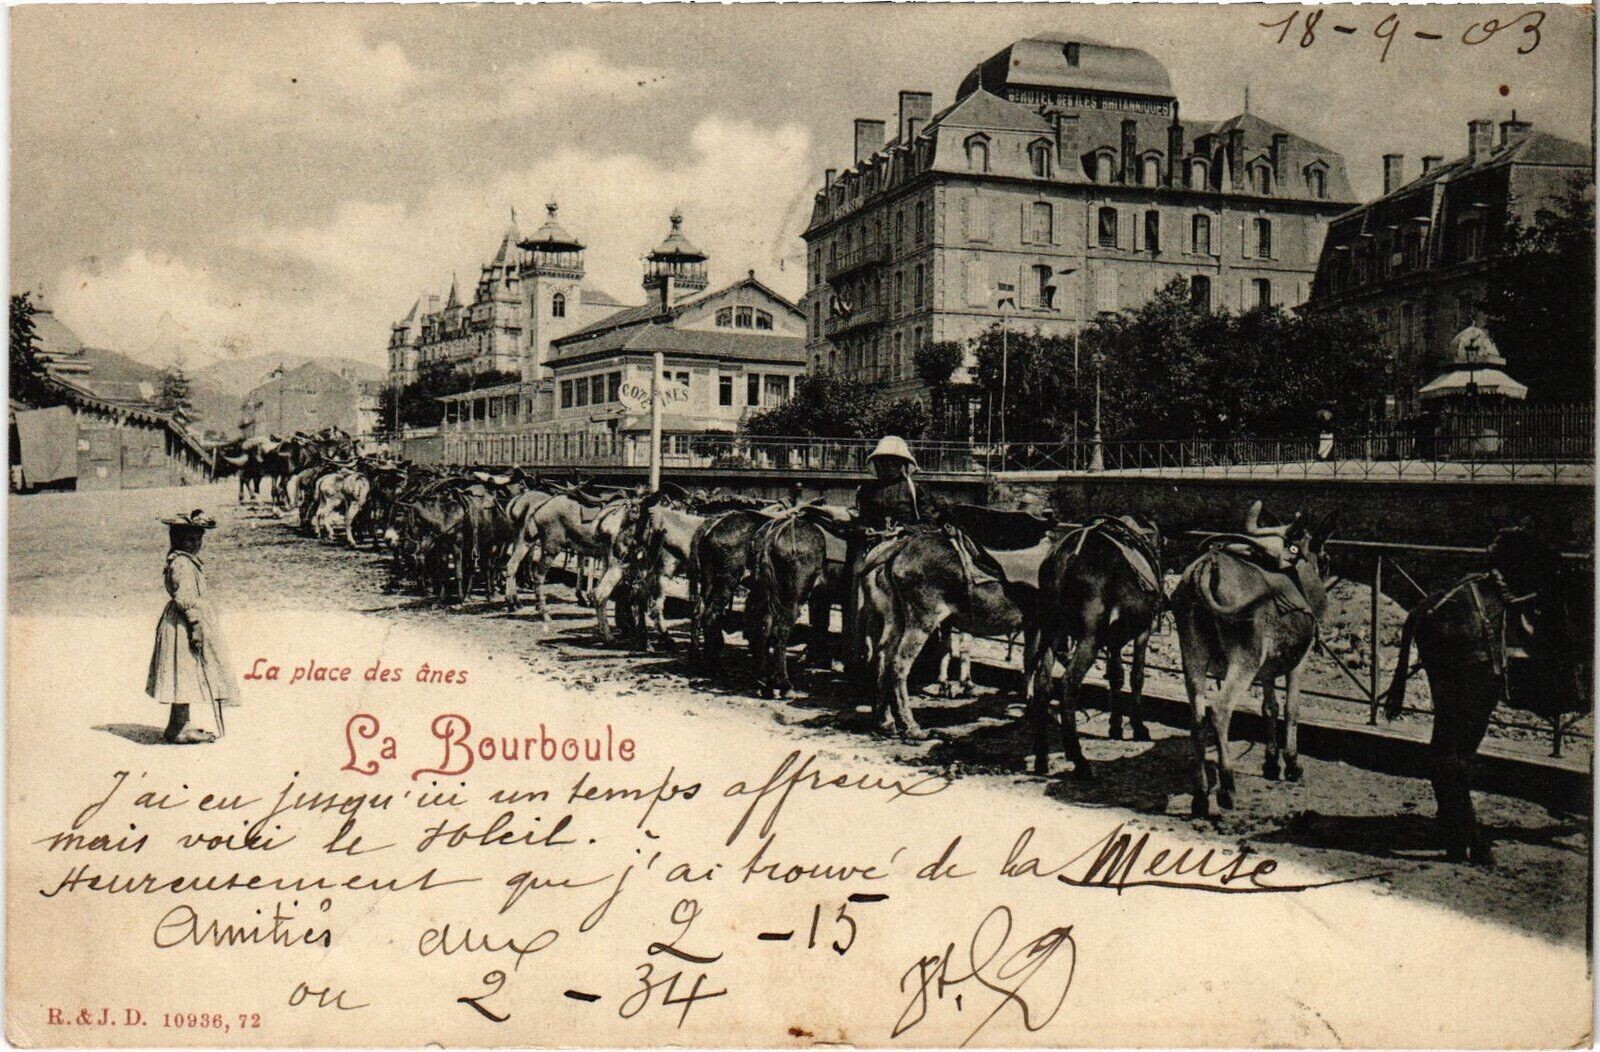 18-9-03
Gd HOTEL DES ILES BRITANNIQUES
La place des ânes
La Bourboule
J'ai eu jusqu'ici un temps affreux
mais voici le soleil.
Heureusement que j'ai trouvé de la Meuse
Amitiés aux 2 - 15
ou 2 - 34
R. & J. D. 10936, 72